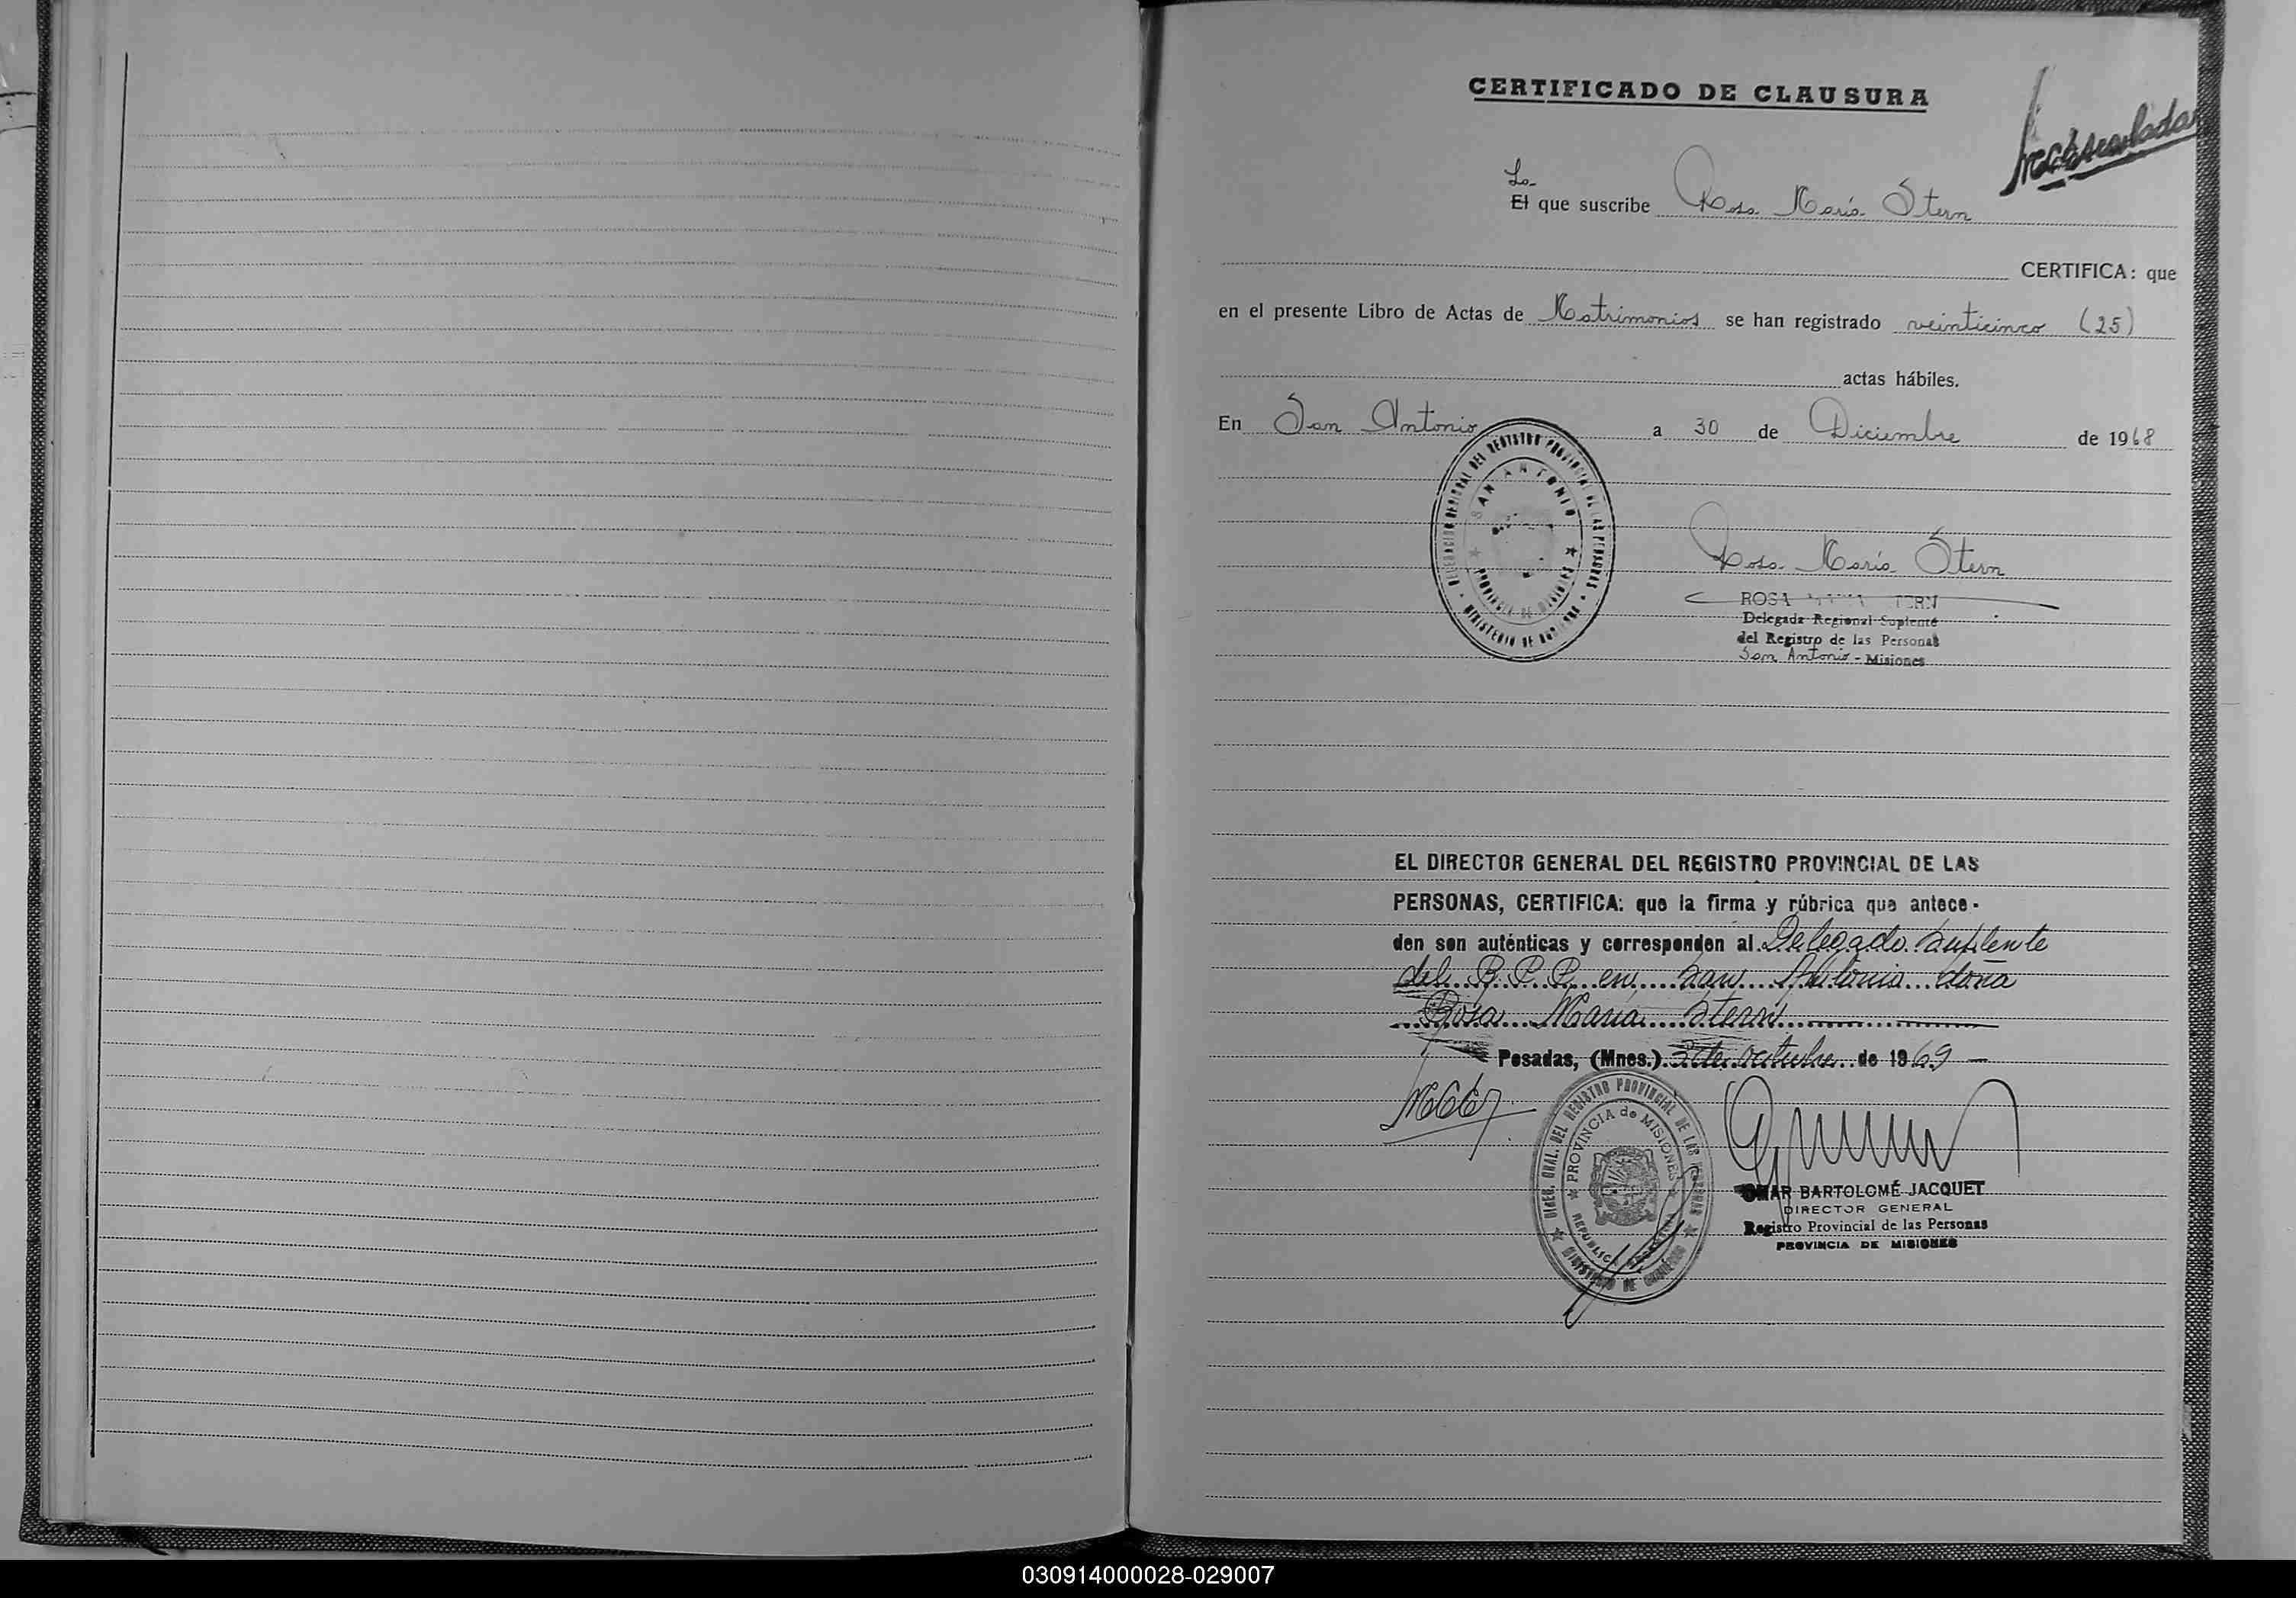 CERTIFICADO DE CLAUSURA
La
El que suscribe Rosa María Stern
CERTIFICA: que
en el presente Libro de Actas de Matrimonios se han registrado veinticinco (25)
actas hábiles.
En San Antonio a 30 de Diciembre de 1968
DELEGACION REGIONAL DEL REGISTRO PROVINCIAL DE LAS PERSONAS
SAN ANTONIO
PROVINCIA DE MISIONES
MINISTERIO DE GOBIERNO
Rosa María Stern
ROSA
Delegada Regional Suplente
del Registro de las Personas
San Antonio - Misiones
EL DIRECTOR GENERAL DEL REGISTRO PROVINCIAL DE LAS
PERSONAS, CERTIFICA: que la firma y rúbrica que antece-
den son auténticas y corresponden al Delegado Suplente
del R. P. P. en San Antonio doña
Rosa María Stern
Posadas, (Mnes.) 2 de octubre de 1969
DIREC. GRAL. DEL REGISTRO PROVINCIAL DE LAS PERSONAS
PROVINCIA de MISIONES
REPUBLICA ARGENTINA
MINISTERIO DE GOBIERNO
OMAR BARTOLOMÉ JACQUET
DIRECTOR GENERAL
Registro Provincial de las Personas
PROVINCIA DE MISIONES
030914000028-029007